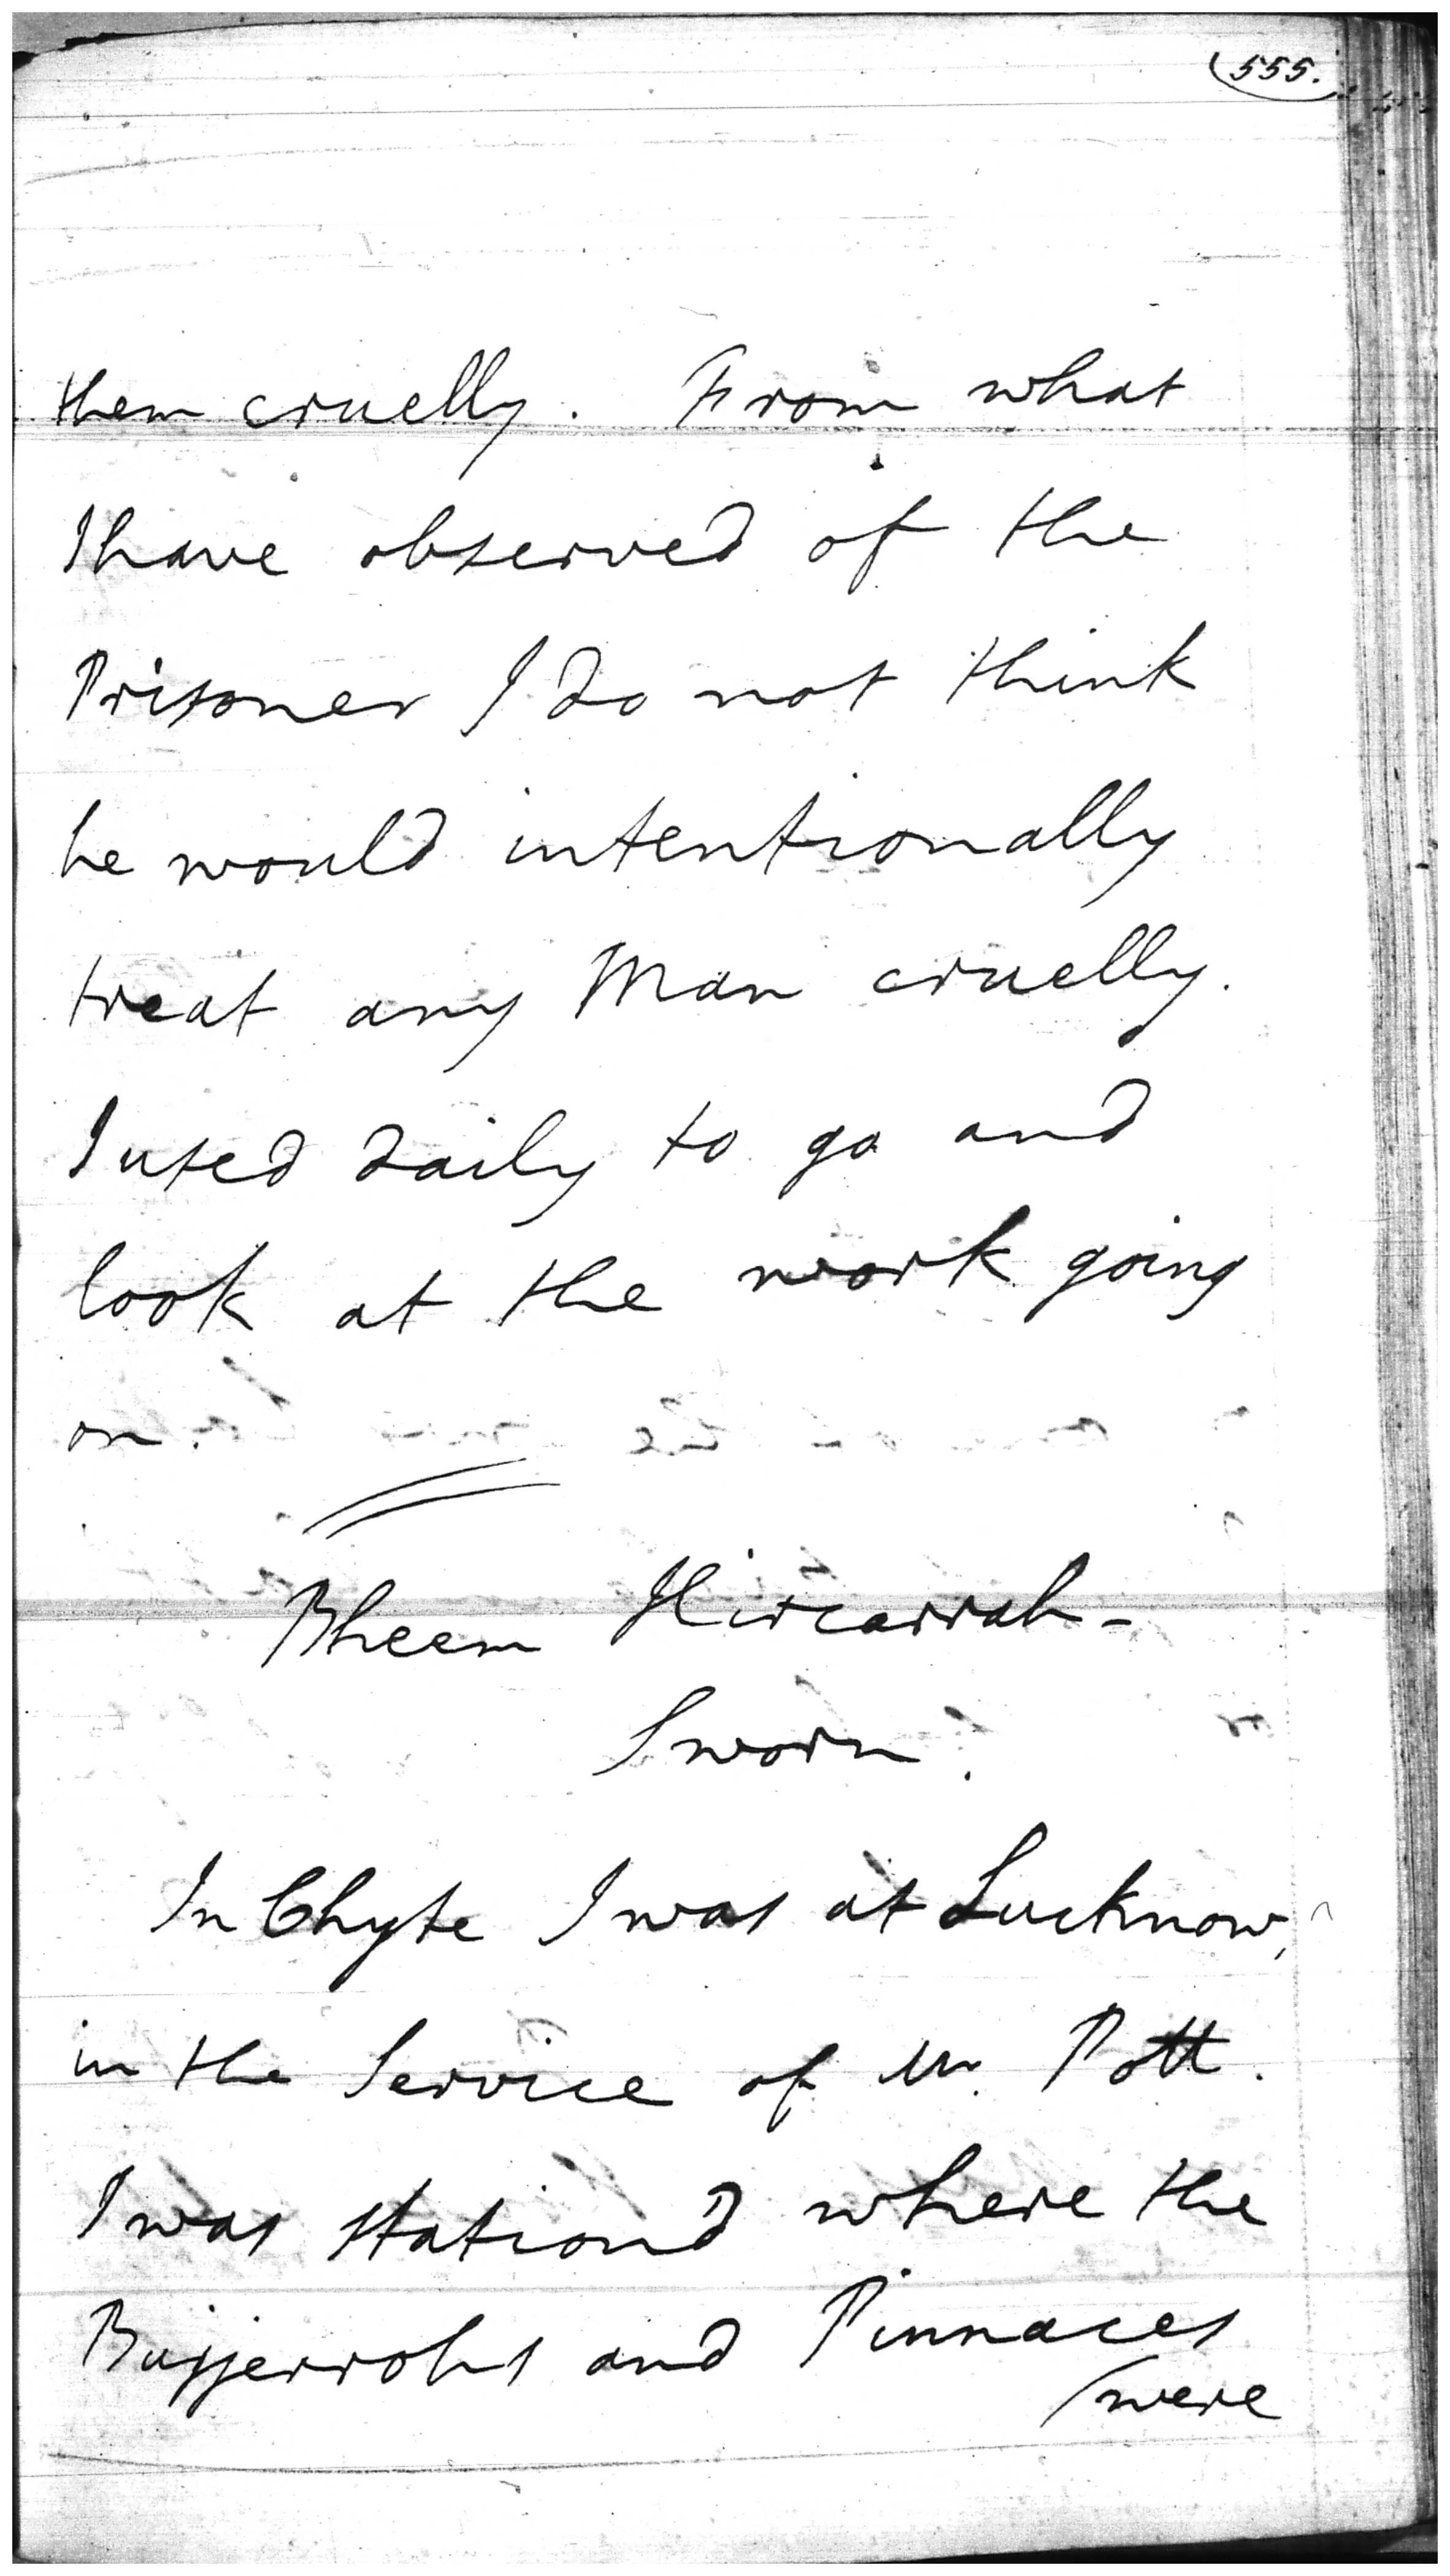 555.
them cruelly. From what
I have observed of the
Prisoner I do not think
he would intentionally
treat any Man cruelly.
I used daily to go and
look at the work going
on.
Bheem Hircarrah -
Sworn.
In Chyte I was at Lucknow,
in the Service of Mr. Pott.
I was station'd where the
Bujjerrohs and Pinnaces
were